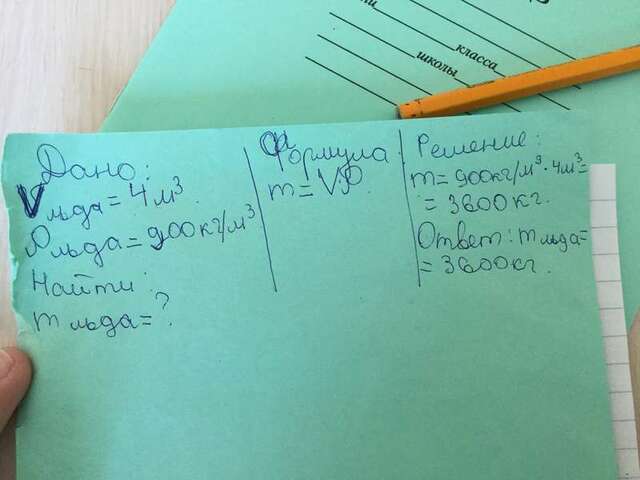 класса
школы
Дано:
Vльда = 4 м³
ρльда = 900 кг/м³
Найти:
m льда = ?
Формула
m = V·ρ
Решение:
m = 900 кг/м³ · 4 м³ =
= 3600 кг.
Ответ: m льда =
= 3600 кг.